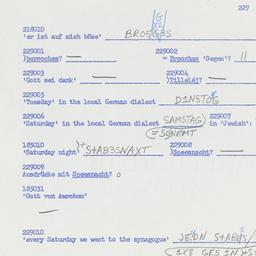 229
218010
'er ist auf nich böse' BROSGBS
229001 229002
)berooches? — = Brooches 'Segen'? 11
229003 229004
'Gott sei dank' — )Tillelé!? —
229005
'Tuesday' in the local German dialect D1NSTOG
229006 229007
'Saturday' in the local German dialect SAMSTAG) in "Jewish":
(=SONEMT
185010 229008
'Saturday night' + StAB3SNAXT )Speenacht? —
229009
Ausdrücke mit Speenacht? o
185031
"Gott von Awrohom"
—
229010
'every Saturday we went to the synagogue' JEDN StABES/
(1X3 GES 1N